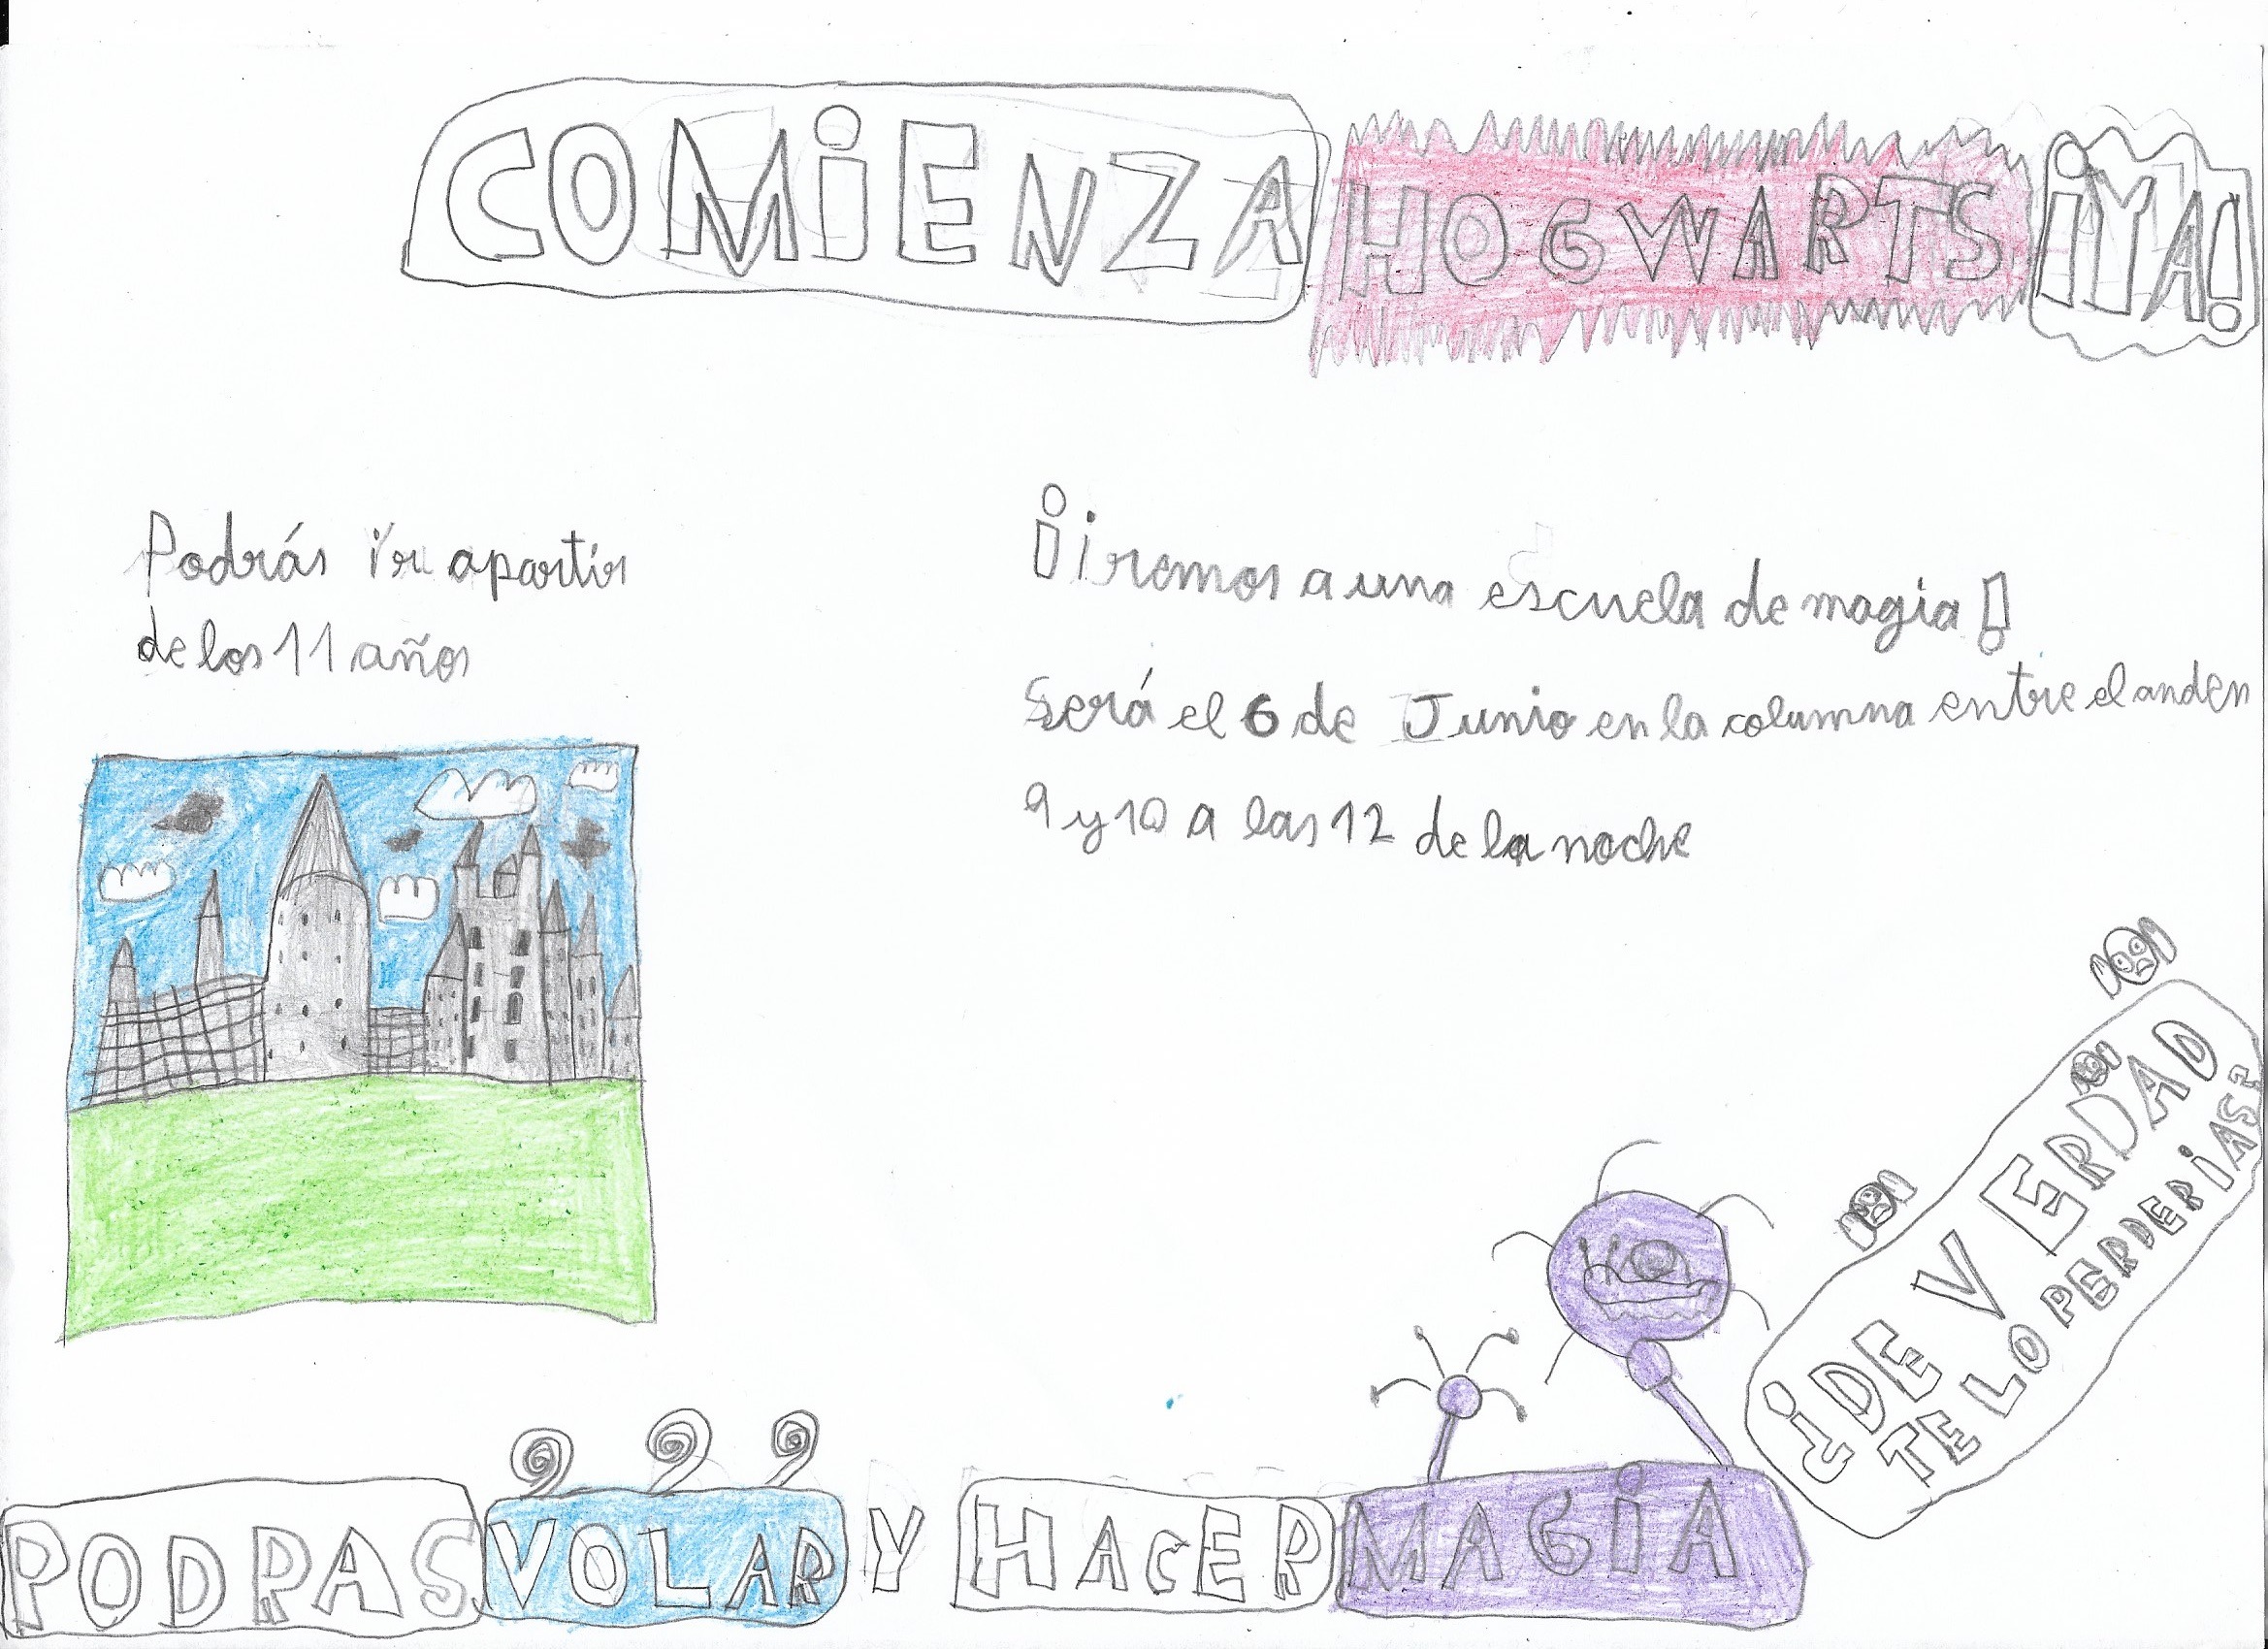 COMiENZA HOGWARTS ¡YA!
Podrás ir apartir
de los 11 años
¡iremos a una escuela de magia!
Será el 6 de Junio en la columna entre el anden
9 y 10 a las 12 de la noche
¿DE VERDAD
TE LO PERDERiAS?
PODRAS VOLAR Y HACER MAGiA